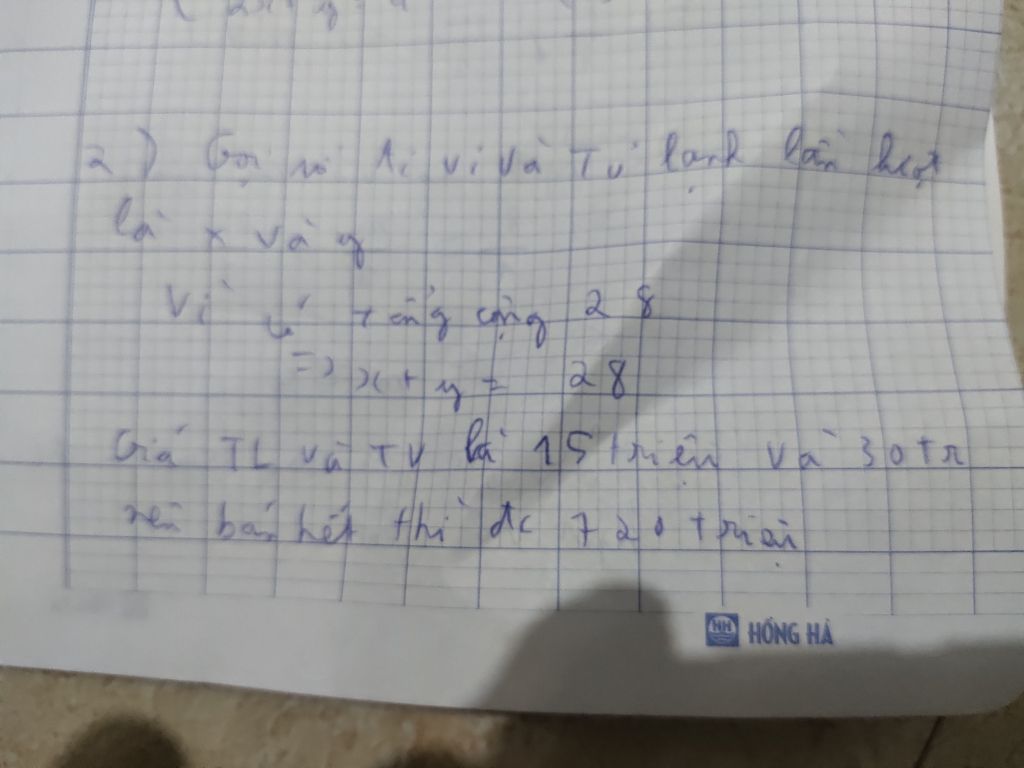 2) Gọi số ti vi và Tủ lạnh lần lượt
là x và y
Vì có tổng cộng 28
=> x + y = 28
Giá TL và TV là 15 triệu và 30 tr
nên bán hết thì đc 720 triệu
HỒNG HÀ